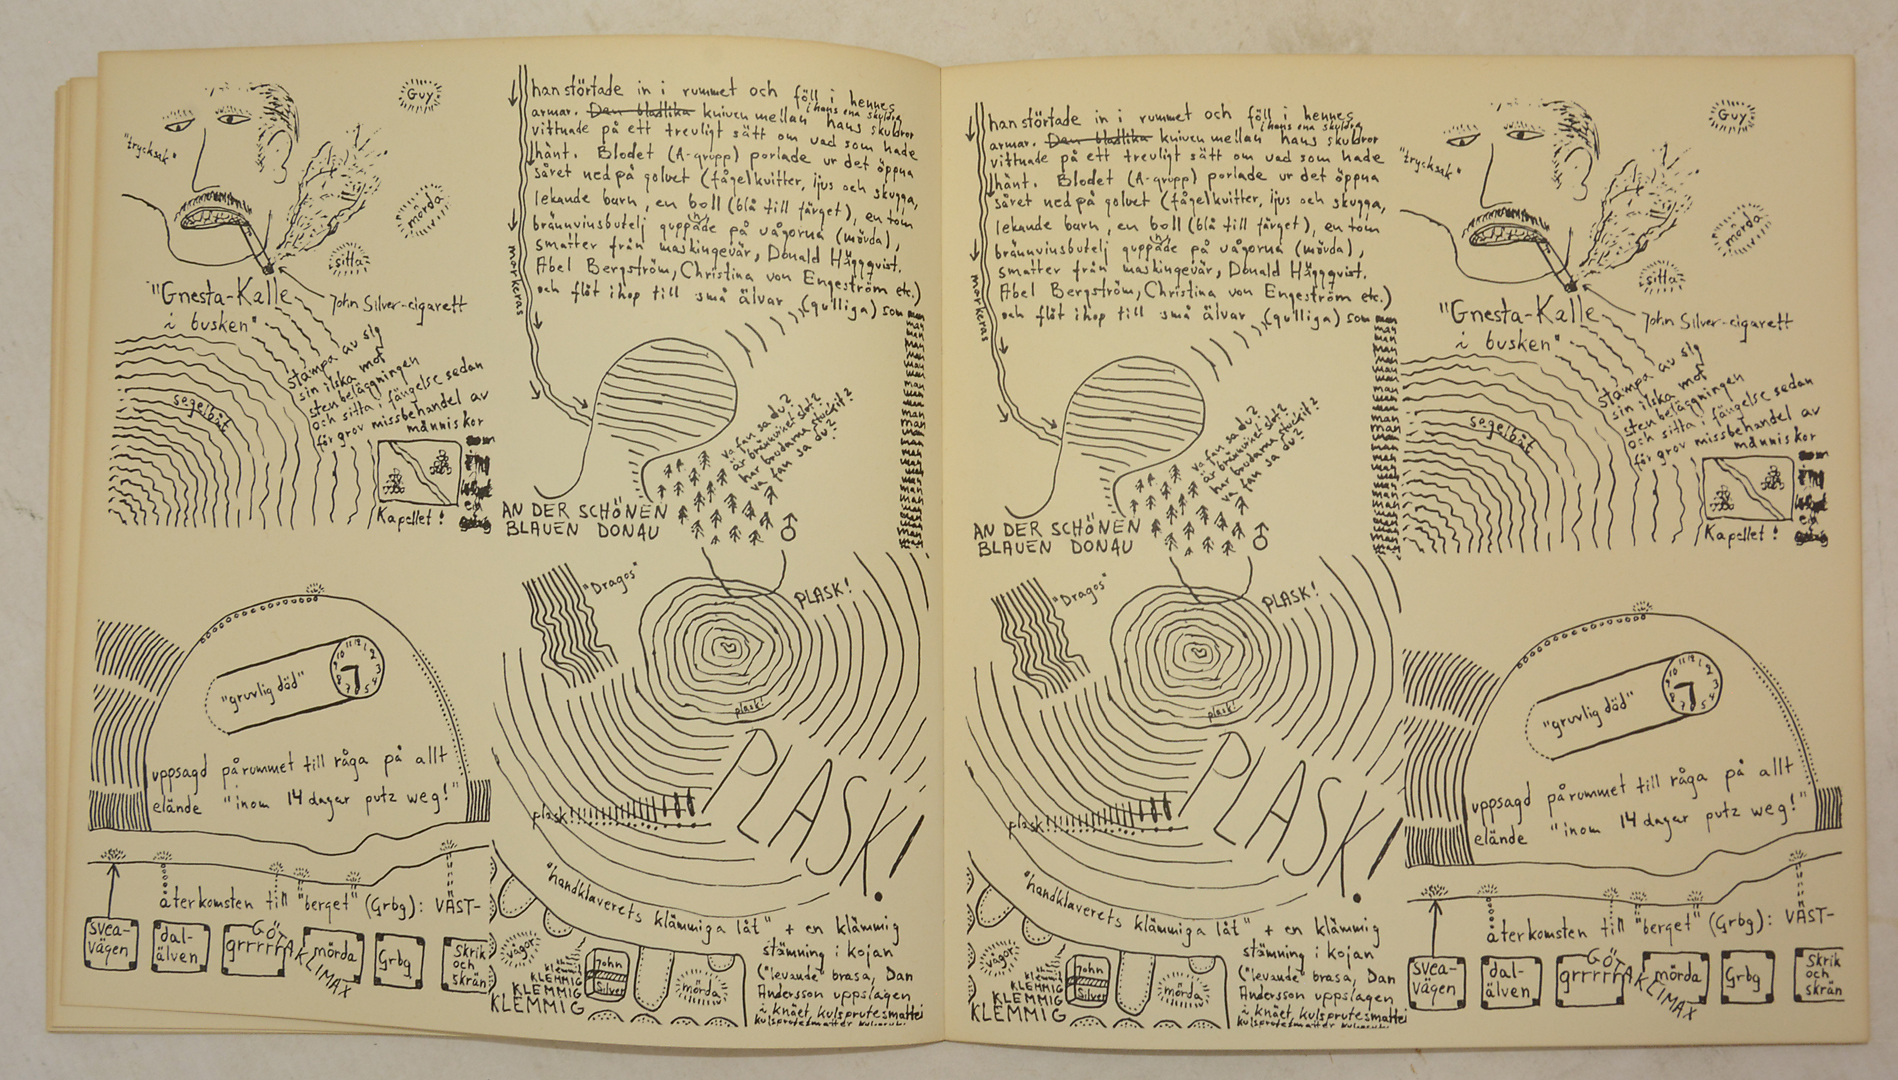 Guy
"trycksak"
mörda
sitta
"Gnesta-Kalle
i busken"
John Silver-cigarett
stampa av sig
sin ilska mot
stenbeläggningen
och sitta i fängelse sedan
för grov missbehandel av
människor
segelbåt
Kapellet!
som
en
han störtade in i rummet och föll i hennes
armar. Den blodlika kniven mellan hans skuldror
i hans ena skuldra
vittnade på ett trevligt sätt om vad som hade
hänt. Blodet (A-grupp) porlade ur det öppna
såret ned på golvet (fågelkvitter, ljus och skugga,
lekande barn, en boll (blå till färget), en tom
brännvinsbutelj guppade på vågorna (mövda),
smatter från maskingevär, Donald Häggqvist.
Abel Bergström, Christina von Engeström etc.)
och flöt ihop till små älvar (gulliga) som
mörkeras
man man man man man man man man
va fan sa du?
är brännvinet slut?
har brudarna stuckit?
va fan sa
du?
AN DER SCHÖNEN
BLAUEN DONAU
"Dragos"
PLASK!
plask!
PLASK!
plask!!!!!!!!!!!!!!!
"gruvlig död"
12 1 2 3 4 5 6 7 8 9 10 11
uppsagd på rummet till råga på allt
elände "inom 14 dagar putz weg!"
återkomsten till "berget" (Grbg): VÄST-
svea-
vägen
dal-
älven
grrrrr
GÖTAKLIMAX
mörda
Grbg
Skrik
och
skrän
"handklaverets klämmiga låt" + en klämmig
stämning i kojan
("levande" brasa, Dan
Andersson uppslagen
i knäet, kulsprutesmatter
kulsprutesmatter
vågor
KLEMMIG
KLEMMIG
KLEMMIG
KLEMMIG
John
Silver
mörda
han störtade in i rummet och föll i hennes
armar. Den blodlika kniven mellan hans skuldror
i hans ena skuldra
vittnade på ett trevligt sätt om vad som hade
hänt. Blodet (A-grupp) porlade ur det öppna
såret ned på golvet (fågelkvitter, ljus och skugga,
lekande barn, en boll (blå till färget), en tom
brännvinsbutelj guppade på vågorna (mövda),
smatter från maskingevär, Donald Häggqvist.
Abel Bergström, Christina von Engeström etc.)
och flöt ihop till små älvar (gulliga) som
mörkeras
man man man man man man man man
va fan sa du?
är brännvinet slut?
har brudarna stuckit?
va fan sa du?
AN DER SCHÖNEN
BLAUEN DONAU
"Dragos"
PLASK!
plask!
PLASK!
plask!!!!!!!!!!!!!!!
"handklaverets klämmiga låt" + en klämmig
stämning i kojan
("levande" brasa, Dan
Andersson uppslagen
i knäet, kulsprutesmatter
kulsprutesmatter
vågor
KLEMMIG
KLEMMIG
KLEMMIG
KLEMMIG
John
Silver
mörda
Guy
"trycksak"
mörda
sitta
"Gnesta-Kalle
i busken"
John Silver-cigarett
stampa av sig
sin ilska mot
stenbeläggningen
och sitta i fängelse sedan
för grov missbehandel av
människor
segelbåt
Kapellet!
som
en
"gruvlig död"
12 1 2 3 4 5 6 7 8 9 10 11
uppsagd på rummet till råga på allt
elände "inom 14 dagar putz weg!"
återkomsten till "berget" (Grbg): VÄST-
svea-
vägen
dal-
älven
grrrrr
GÖTAKLIMAX
mörda
Grbg
Skrik
och
skrän